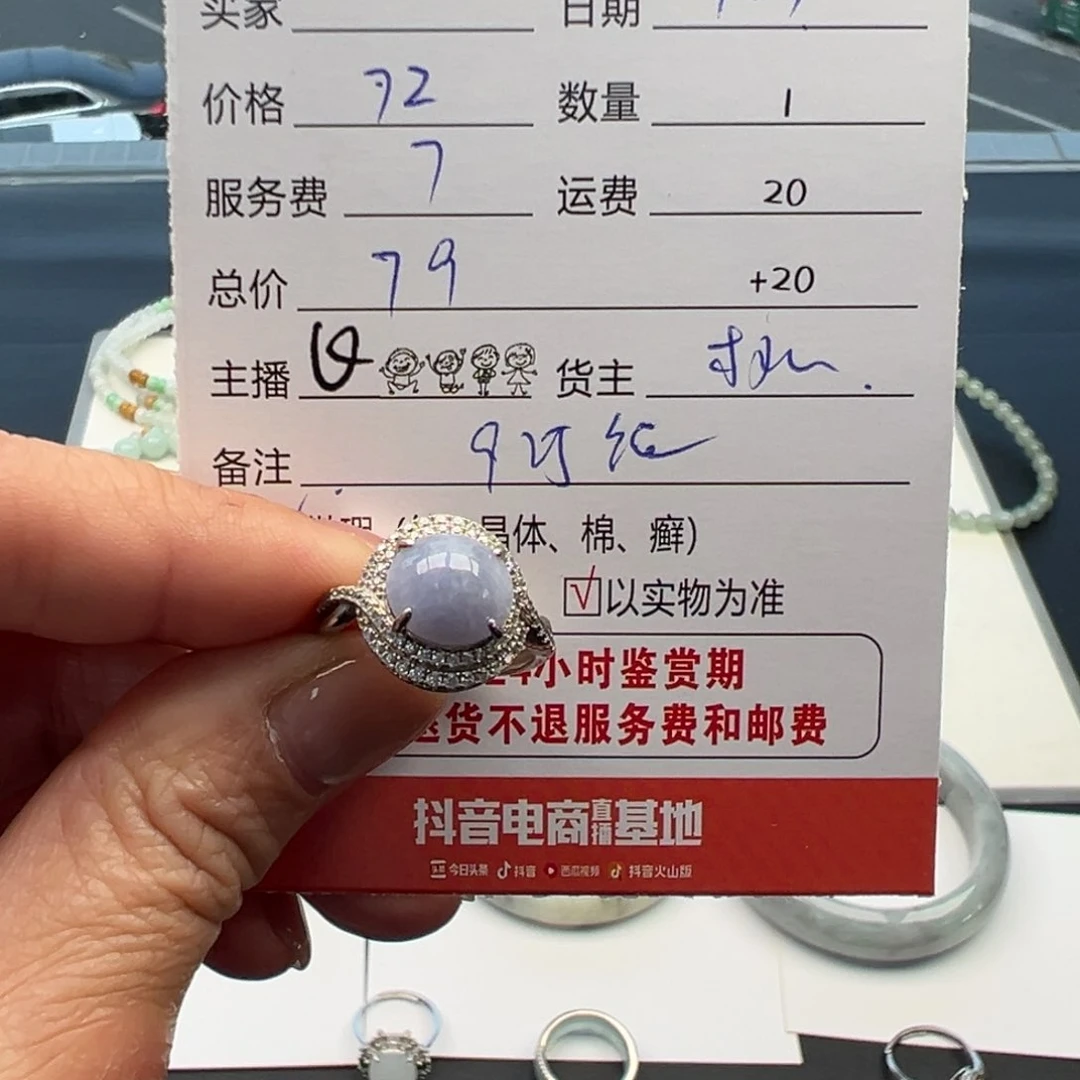 买家 日期
价格 72 数量 1
服务费 7 运费 20
总价 79 +20
主播 货主
备注
晶体、棉、癣)
√以实物为准
24小时鉴赏期
退货不退服务费和邮费
抖音电商直播基地
头条 今日头条 抖音 西瓜视频 抖音火山版